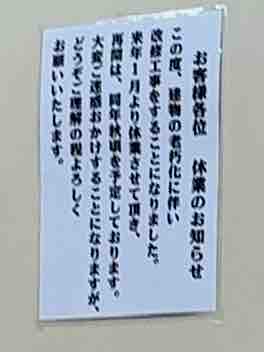 お客様各位　休業のお知らせ
この度、建物の老朽化に伴い
改修工事をすることになりました。
来年１月より休業させて頂き、
再開は、同年秋頃を予定しております。
大変ご迷惑おかけすることになりますが、
どうぞご理解の程よろしく
お願いいたします。